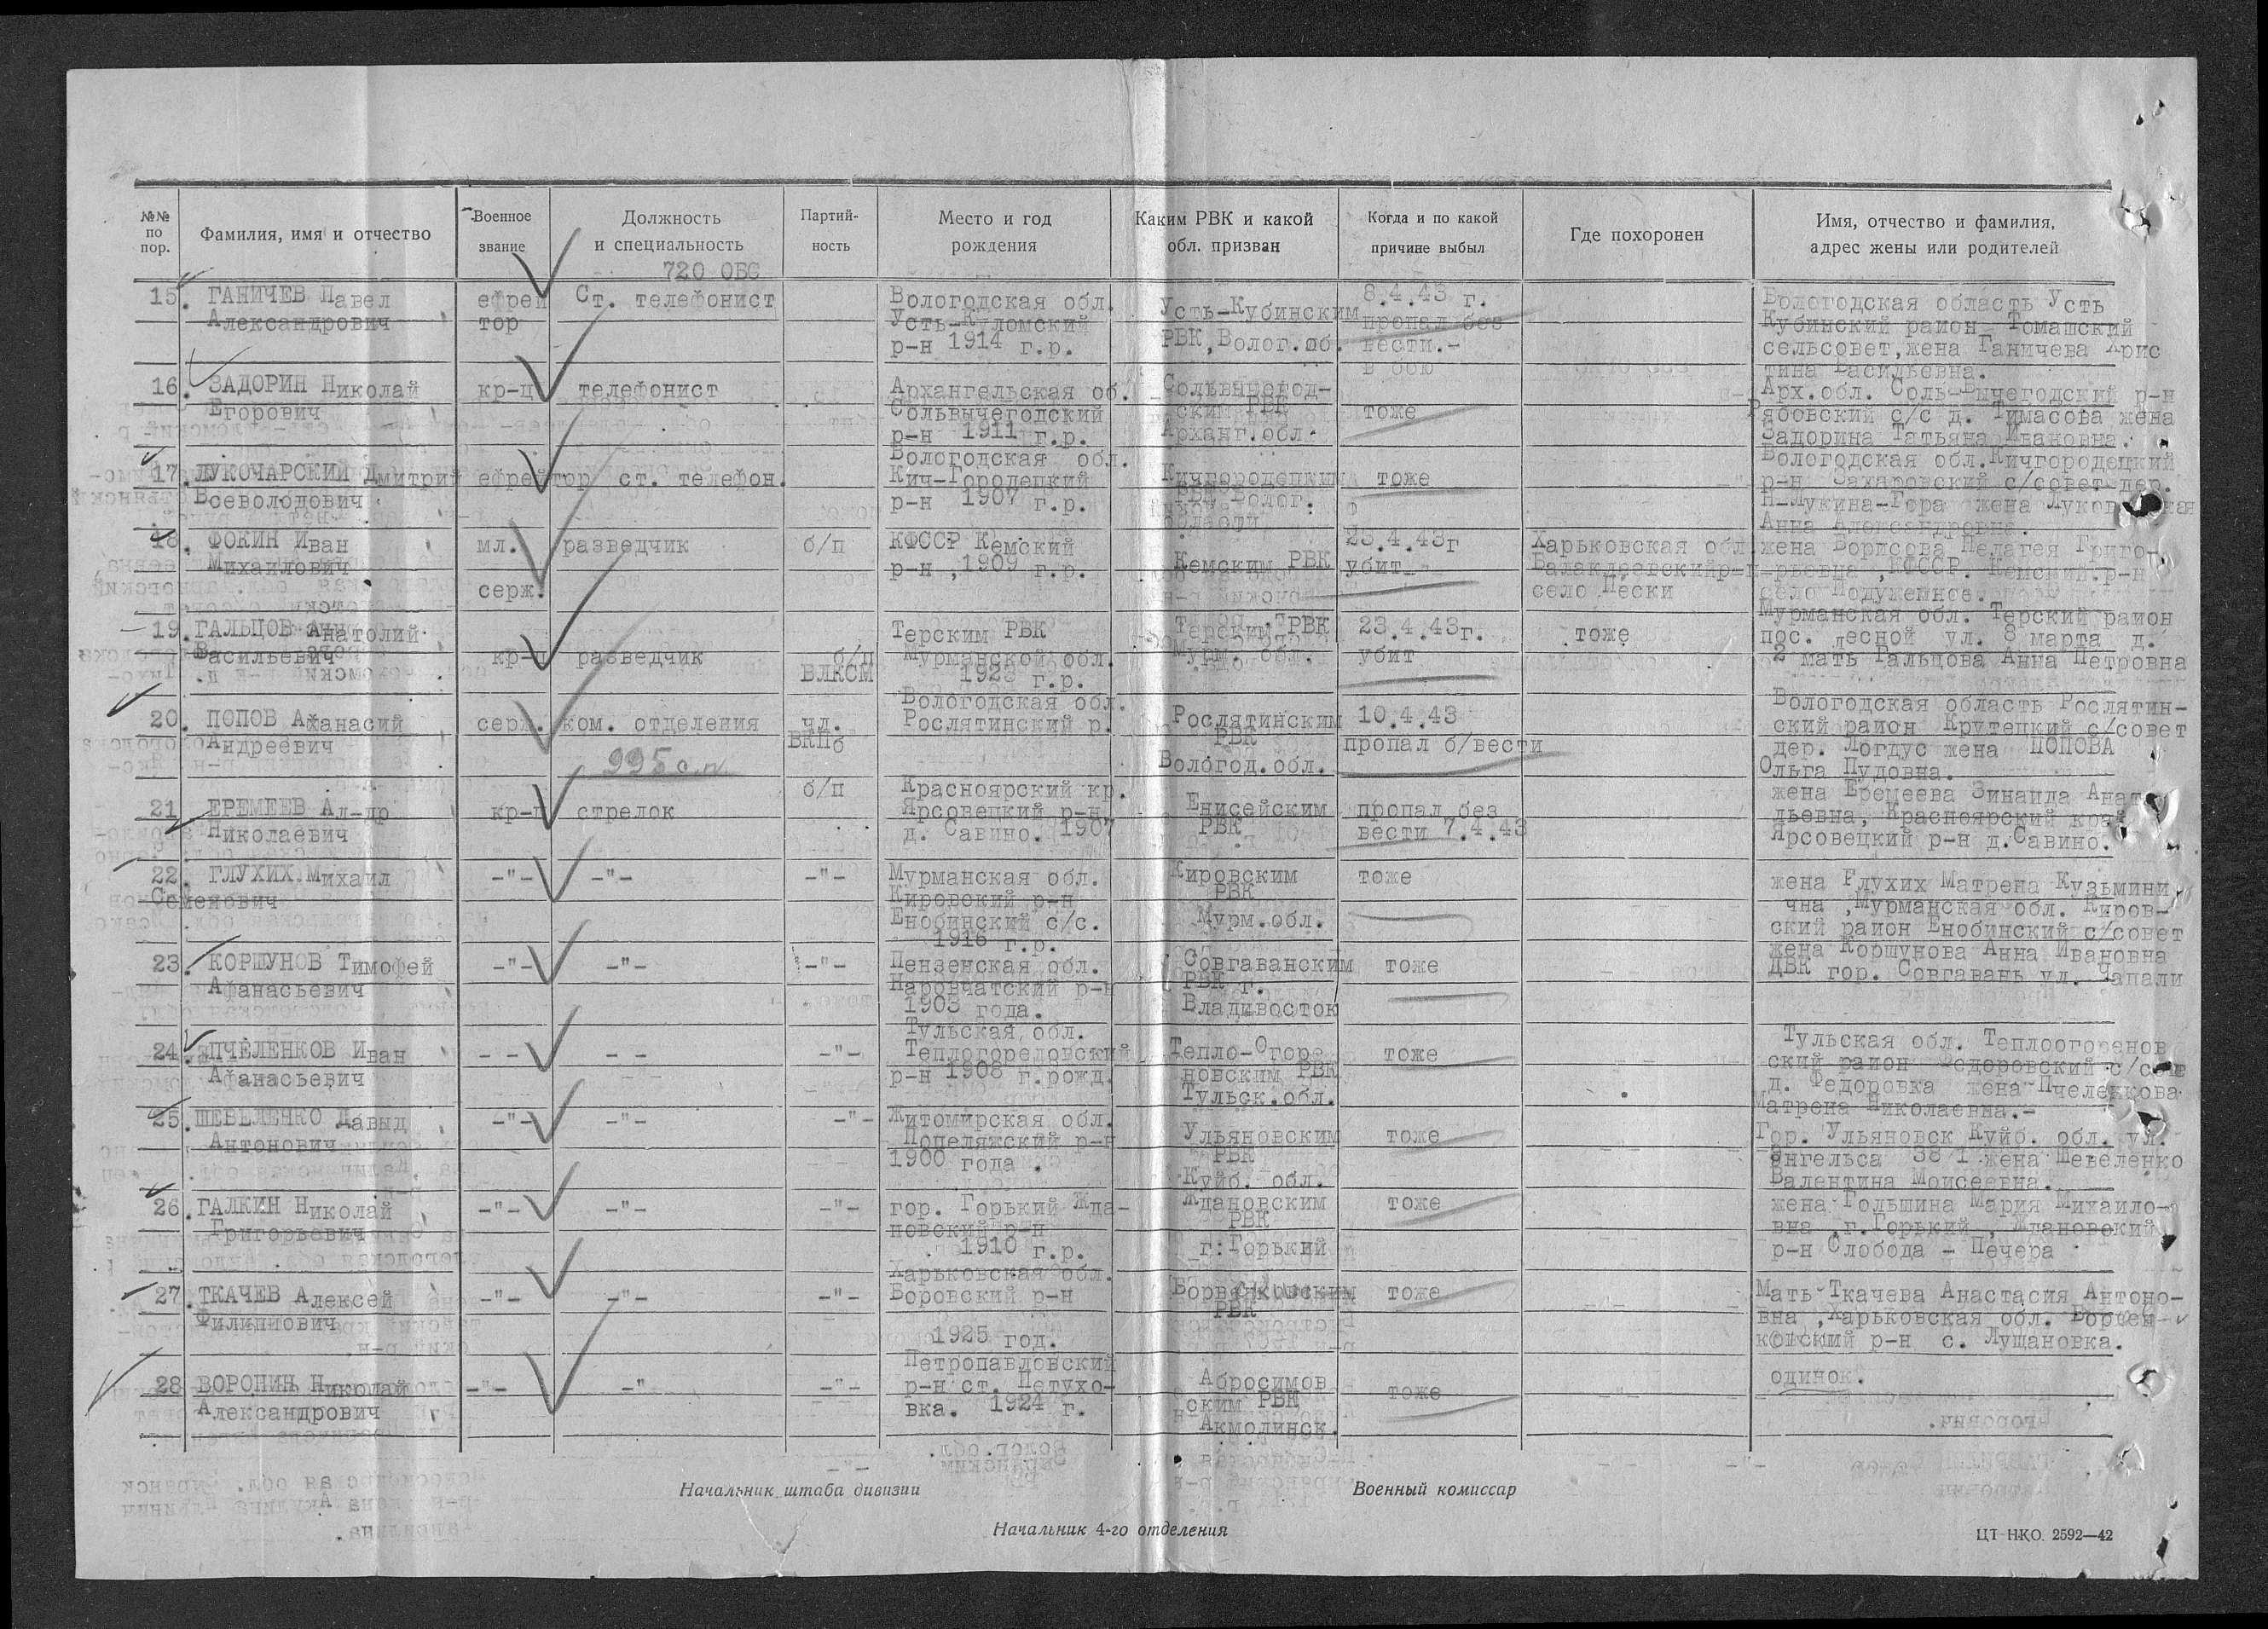 №№ по пор.
Фамилия, имя и отчество
Военное звание
Должность и специальность
Партий-ность
Место и год рождения
Каким РВК и какой обл. призван
Когда и по какой причине выбыл
Где похоронен
Имя, отчество и фамилия, адрес жены или родителей
720 ОБС
15. ГАНИЧЕВ Павел
Александрович
ефрей
тор
Ст. телефонист
Вологодская обл.
р-н 1914 г.р.
Усть-Кубинским
РВК, Волог.об.
8.4.43 г.
пропал без
вести.-
в бою
Вологодская область Усть
Кубинский район Томашский
сельсовет, жена Ганичева Хрис
тина Васильевна.
16. ЗАДОРИН Николай
Егорович
кр-ц
телефонист
Архангельская об.
Сольвычегодский
р-н 1911 г.р.
Сольвычегод-
ским РВК
Арханг.обл.
тоже
Арх.обл. Соль-Вычегодский р-н
Рябовский с/с д. Тимасова жена
Задорина Татьяна Ивановна.
17. ЛУКОЧАРСКИЙ Дмитрий
Всеволодович
ефрейтор
ст. телефон.
Вологодская обл.
Кич-Городецкий
р-н 1907 г.р.
Кичгородецким
РВК Волог.
области
тоже
Вологодская обл.Кичгородецкий
р-н Захаровский с/совет дер.
Н-Лукина-Гора жена
Анна Александровна.
18. ФОКИН Иван
Михаилович
мл.
серж.
разведчик
б/п
КФССР Кемский
р-н, 1909 г.р.
Кемским РВК
23.4.43г
убит
Харьковская обл.
Балаклеевский р-н
село Пески
жена Борисова Пелагея Григо-
рьевна, КФССР. Кемский.р-н
село Подужемное.
19. ГАЛЬЦОВ Анатолий
Васильевич
кр-ц
разведчик
б/п
ВЛКСМ
Терским РВК
Мурманской обл.
1923 г.р.
Терским РВК
Мурм. обл.
23.4.43г.
убит
тоже
Мурманская обл. Терский район
пос. лесной ул. 8 марта д.
2 мать Гальцова Анна Петровна
20. ПОПОВ Афанасий
Андреевич
серж.
ком. отделения
чл.
ВКПб
Вологодская обл.
Рослятинский р.
Рослятинским
РВК
Вологод.обл.
10.4.43
пропал б/вести
Вологодская область Рослятин-
ский район Крутецкий с/совет
дер. Логдус жена ПОПОВА
Ольга Пудовна.
995 с.п.
21 ЕРЕМЕЕВ Ал-др
Николаевич
кр-ц
стрелок
б/п
Красноярский кр.
Ярсовецкий р-н,
д. Савино. 1907
Енисейским
РВК
пропал без
вести 7.4.43
жена Еремеева Зинаида Анат
льевна, Красноярский край
Ярсовецкий р-н д.Савино.
22. ГЛУХИХ Михаил
Семенович
-"-
-"-
-"-
Мурманская обл.
Кировский р-н
Енобинский с/с.
1916 г.р.
Кировским
РВК
Мурм.обл.
тоже
жена Глухих Матрена Кузьмини
чна, Мурманская обл. Киров-
ский район Енобинский с/совет
23. КОРШУНОВ Тимофей
Афанасьевич
-"-
-"-
-"-
Пензенская обл.
Наровчатский р-н
1903 года.
Совгаванским
РВК г.
Владивосток
тоже
жена Коршунова Анна Ивановна
ДВК гор. Совгавань ул. Чапали
24. ПЧЕЛЕНКОВ Иван
Афанасьевич
- -
- -
-"-
Тульская обл.
р-н 1908 г.рожд.
Тепло-Огоре
новским РВК
Тульск.обл.
тоже
Тульская обл. Теплоогоренов
ский район Федоровский с/сов
д. Федоровка жена Пчеленкова
Матрена Николаевна.-
25. ШЕВЕЛЕНКО Давыд
Антонович
-"-
-"-
-"-
Житомирская обл.
Попеляжский р-н
1900 года.
Ульяновским
РВК
Куйб. обл.
тоже
Гор. Ульяновск Куйб. обл. ул.
Энгельса 38/1 жена Шевеленко
Валентина Моисеевна.
26. ГАЛКИН Николай
Григорьевич
-"-
-"-
-"-
гор. Горький Жда-
новский р-н
1910 г.р.
Ждановским
РВК
г.Горький
тоже
жена Гольшина Мария Михаило-
вна, г.Горький, Ждановский
р-н Слобода - Печера
27. ТКАЧЕВ Алексей
Филиппович
-"-
-"-
-"-
Харьковская обл.
Боровский р-н
1925 год.
РВК
тоже
Мать Ткачева Анастасия Антоно-
вна, Харьковская обл.
р-н с. Лушановка.
28 ВОРОНИН Николай
Александрович
-"-
-"
-"-
Петропавловский
р-н ст. Петухо-
вка. 1924 г.
Абросимов
ским РВК
Акмолинск.
тоже
одинок.
Начальник штаба дивизии
Военный комиссар
Начальник 4-го отделения
ЦТ НКО. 2592—42